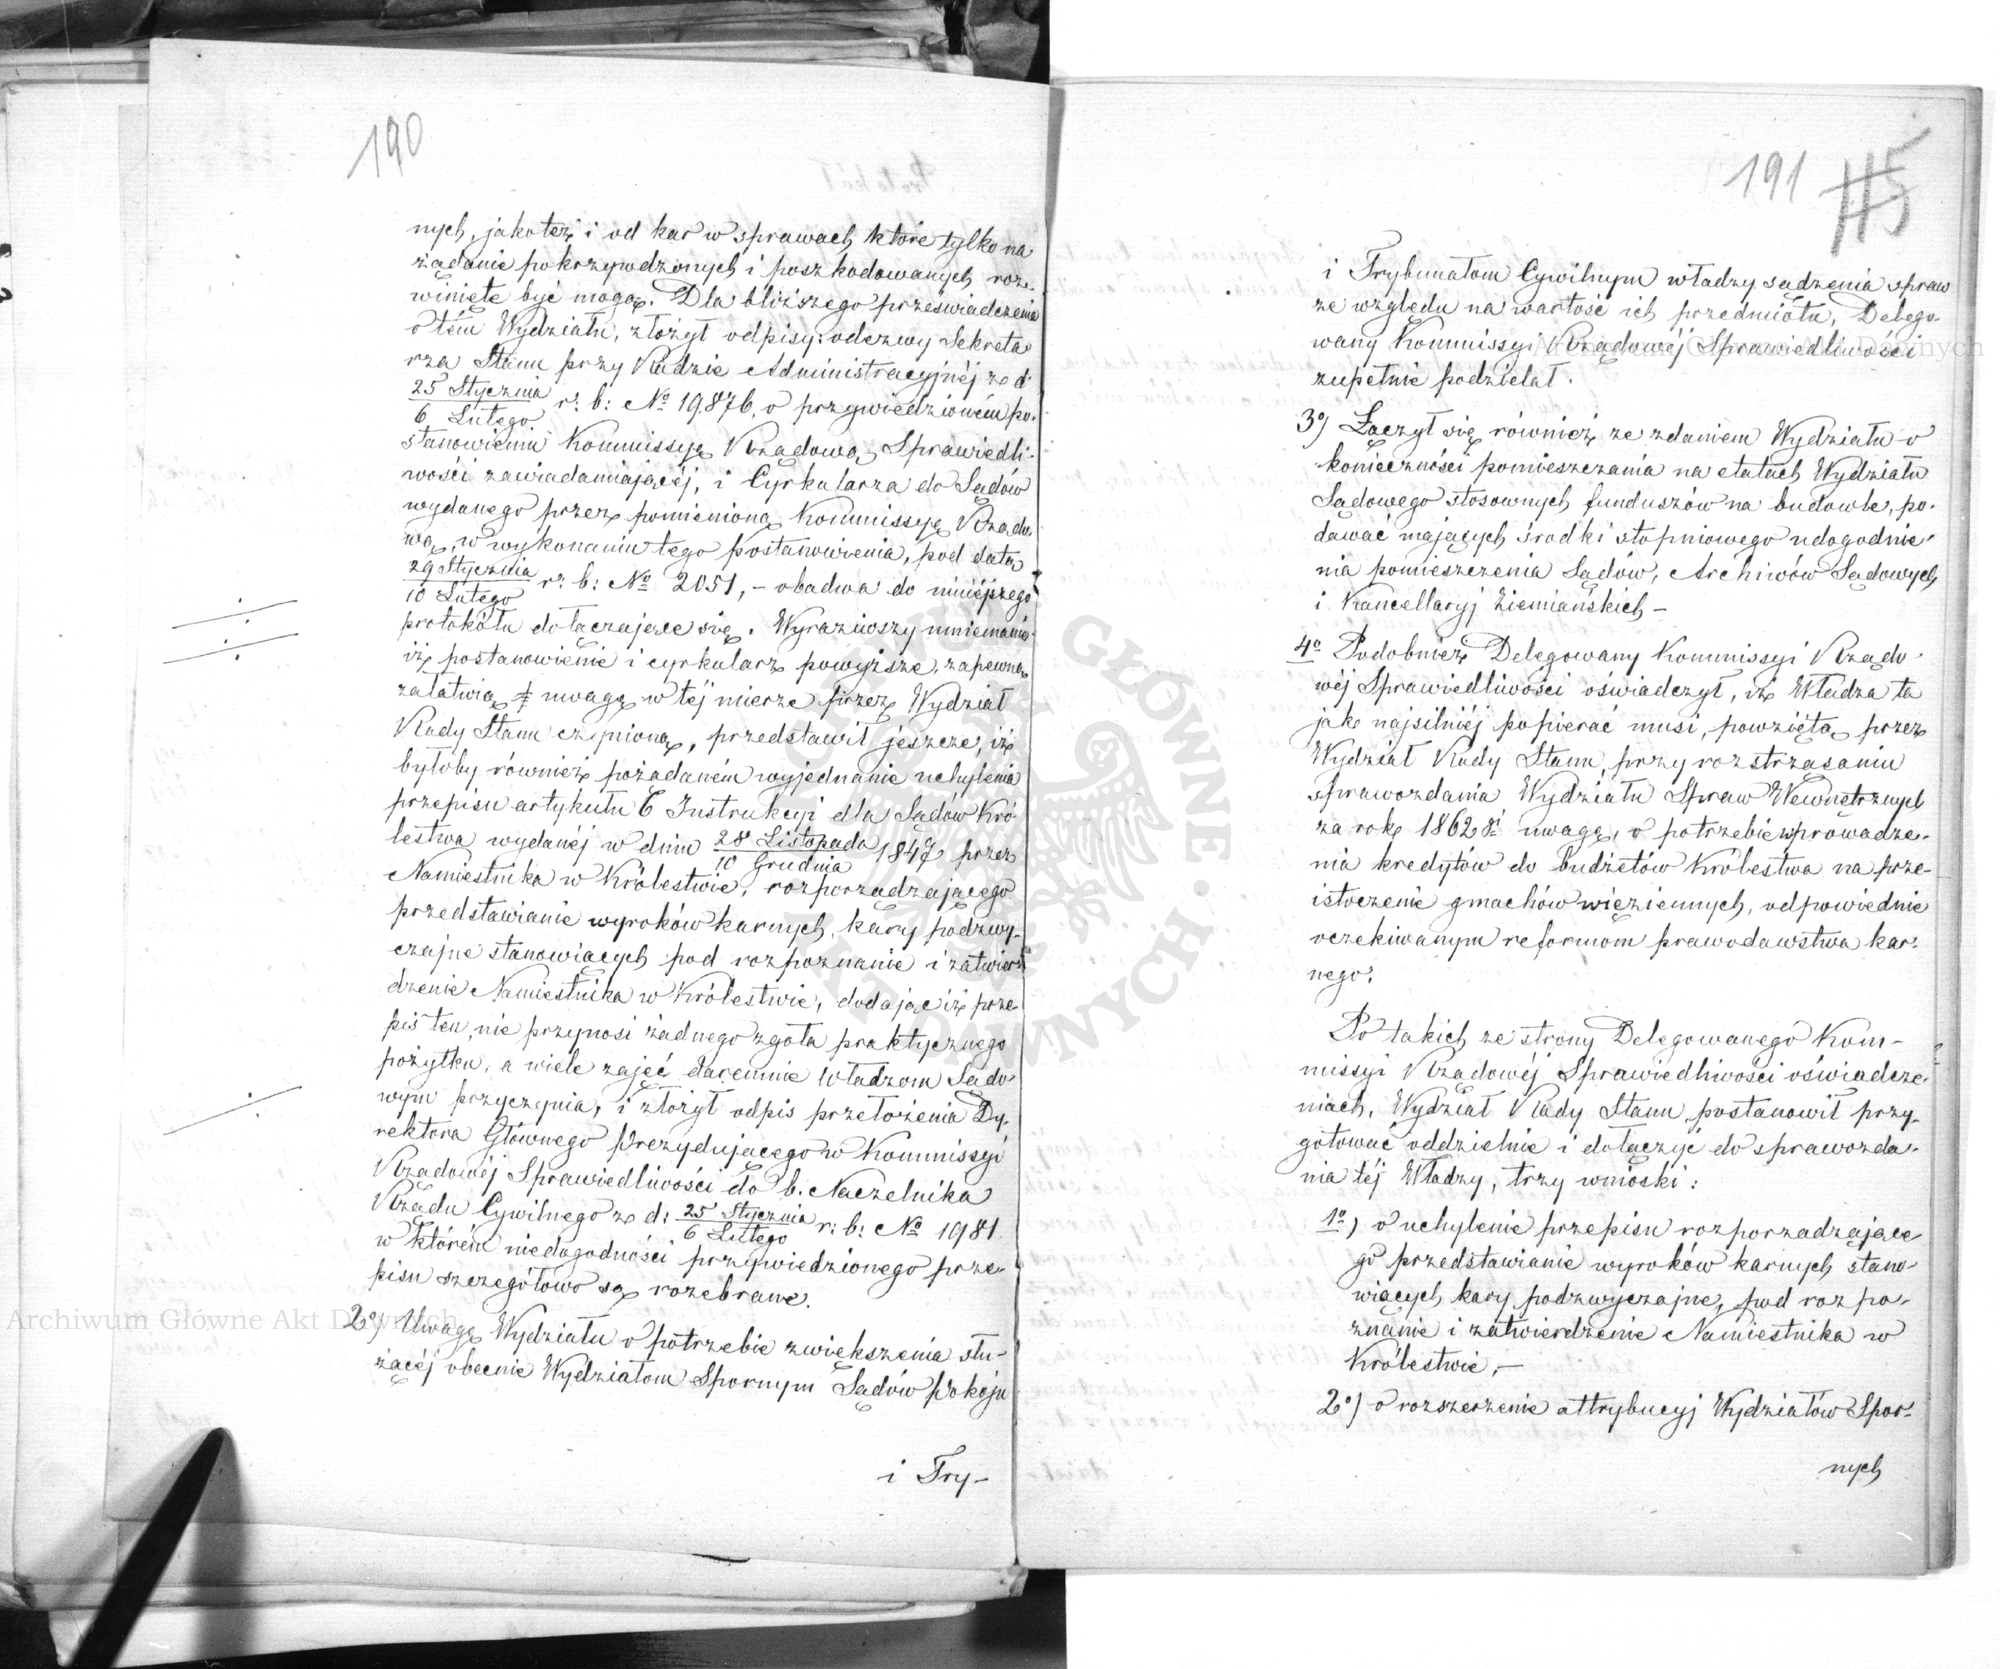 190
nych, jakoteż i od kar w sprawach które tylko na
żądanie pokrzywdzonych i poszkodowanych roz-
winięte być mogą. Dla bliższego przeświadczenia
o tém Wydziału, złożył odpisy: odezwy Sekreta
rza Stanu przy Radzie Administracyjnéj z d:
25 Stycznia / 6 Lutego r: b: No 19.876, o przywiedzioném po-
stanowieniu Kommissyą Rządową Sprawiedli-
wości zawiadamiającéj, i Cyrkularza do Sądów
wydanego przez pomienioną Kommissyę Rządo-
wą, w wykonaniu tego postanowienia, pod datą
29 Stycznia / 10 Lutego r: b: No 2051, – obadwa do niniéjszego
protokółu dołączające się. Wyraziwszy mniemanie
iż postanowienie i cyrkularz powyższe, zapewne
załatwią uwagę w téj mierze przez Wydział
Rady Stanu czynioną, przedstawił jeszcze, iż
byłoby również pożądaném wyjednanie uchylenia
przepisu artykułu 6 Instrukcyi dla Sądów Kró-
lestwa wydanéj w dniu 28 Listopada / 10 Grudnia 1847 przez
Namiestnika w Królestwie, rozporządzającego
przedstawianie wyroków karnych, kary podzwy-
czajne stanowiących pod rozpoznanie i zatwier-
dzenie Namiestnika w Królestwie, dodając iż prze-
pis ten, nie przynosi żadnego zgoła praktycznego
pożytku, a wiele zajęć daremnie Władzom Sądo-
wym przyczynia, i złożył odpis przełożenia Dy-
rektora Głównego Prezydującego w Kommissyi
Rządowéj Sprawiedliwości do b. Naczelnika
Rządu Cywilnego z d: 25 Stycznia / 6 Lutego r: b: No 1981
w którém niedogodności przywiedzionego prze-
pisu szczegółowo są rozebrane.
2o) Uwagę Wydziału o potrzebie zwiększenia słu-
żącéj obecnie Wydziałom Spornym Sądów Pokoju
i Try-
191
115
i Trybunałom Cywilnym władzy sądzenia spraw
ze względu na wartość ich przedmiotu, Delego-
wany Kommissyi Rządowéj Sprawiedliwości
zupełnie podzielał.
3o) Łączył się również ze zdaniem Wydziału o
konieczności pomieszczania na etatach Wydziału
Sądowego stosownych funduszów na budowle, po-
dawać mających środki stopniowego udogodnie-
nia pomieszczenia Sądów, Archiwów Sądowych
i Kancellaryj Ziemiańskich –
4o Podobnież Delegowany Kommissyi Rządo-
wéj Sprawiedliwości oświadczył, iż Władza ta
jak najsilniéj popierać musi, powziętą przez
Wydział Rady Stanu, przy rozstrząsaniu
sprawozdania Wydziału Spraw Wewnętrznych
za rok 1862gi uwagę, o potrzebie wprowadze-
nia kredytów do budżetów Królestwa na prze-
istoczenie gmachów więziennych, odpowiednie
oczekiwanym reformom prawodawstwa kar-
nego.
Po takich ze strony Delegowanego Kom-
missyi Rządowéj Sprawiedliwości oświadcze-
niach, Wydział Rady Stanu postanowił przy-
gotować oddzielnie i dołączyć do sprawozda-
nia téj Władzy, trzy wnioski:
1o) o uchylenie przepisu rozporządzające-
go przedstawianie wyroków karnych stano-
wiących kary podzwyczajne, pod rozpo-
znanie i zatwierdzenie Namiestnika w
Królestwie, –
2o) o rozszerzenie attrybucyj Wydziałów Spor-
nych
Archiwum Główne Akt Dawnych
Archiwum Główne Akt Dawnych
ARCHIWUM GŁÓWNE AKT DAWNYCH